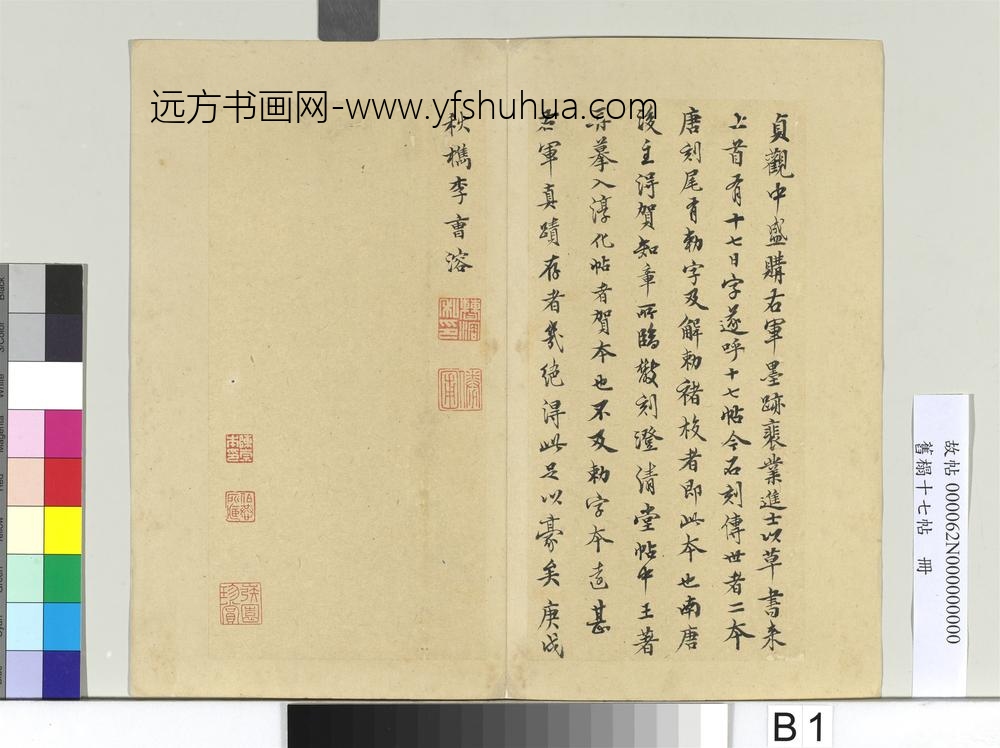 远方书画网-www.yfshuhua.com
貞觀中盛購右軍墨跡裴業進士以草書來
上首有十七日字遂呼十七帖今石刻傳世者二本
唐刻尾有勅字及解勅褚校者即此本也南唐
後主得賀知章所臨鼗刻澄清堂帖中王著
摹入淳化帖者賀本也不及勅字本遠甚
軍真蹟存者幾絕得此足以豪矣庚戌
秋樵李曹溶
珍賞
故帖 000062N000000000
舊榻十七帖 冊
B1
Black
3/Color
White
Magenta
Red
Yellow
Green
Cyan
Blue